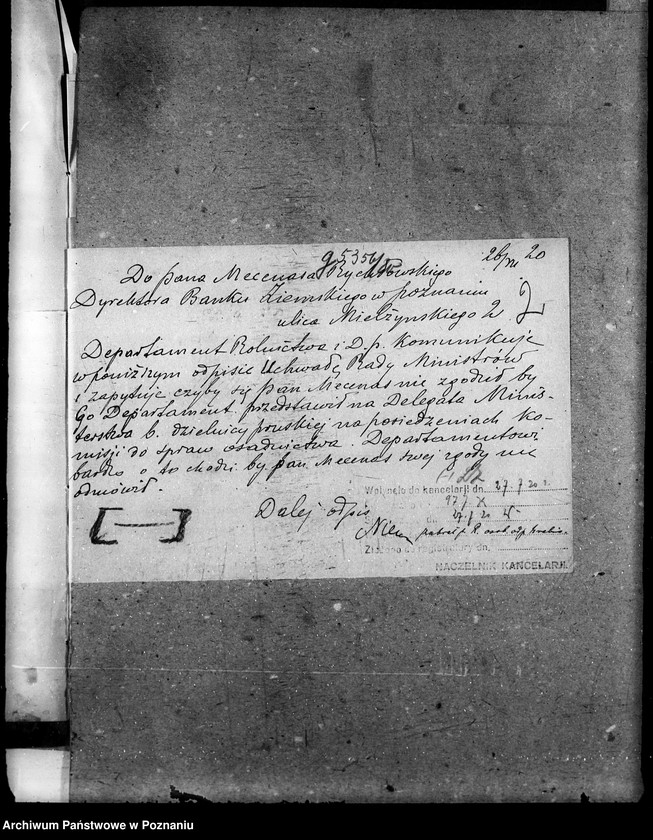 26/VII 20
Do Pana Mecenasa Rychłowskiego
Dyrektora Banku Ziemskiego w Poznaniu
ulica Mielżynskiego 2
Departament Rolnictwa i D.p. Komunikuje
w poniższym odpisie Uchwałę Rady Ministrów
i zapytuje czyby się Pan Mecenas nie zgodził by
Go Departament przedstawił na Delegata Minis-
terstwa b. dzielnicy pruskiej na posiedzeniach Ko-
misji do spraw osadnictwa. Departamentowi
bardzo o to chodzi by Pan Mecenas swej zgody nie
odmówił.
Dalej odpis
Wpłynęło do kancelarji dn. 27.7.20 r.
Złożono do registratury dn.
NACZELNIK KANCELARJI.
Archiwum Państwowe w Poznaniu